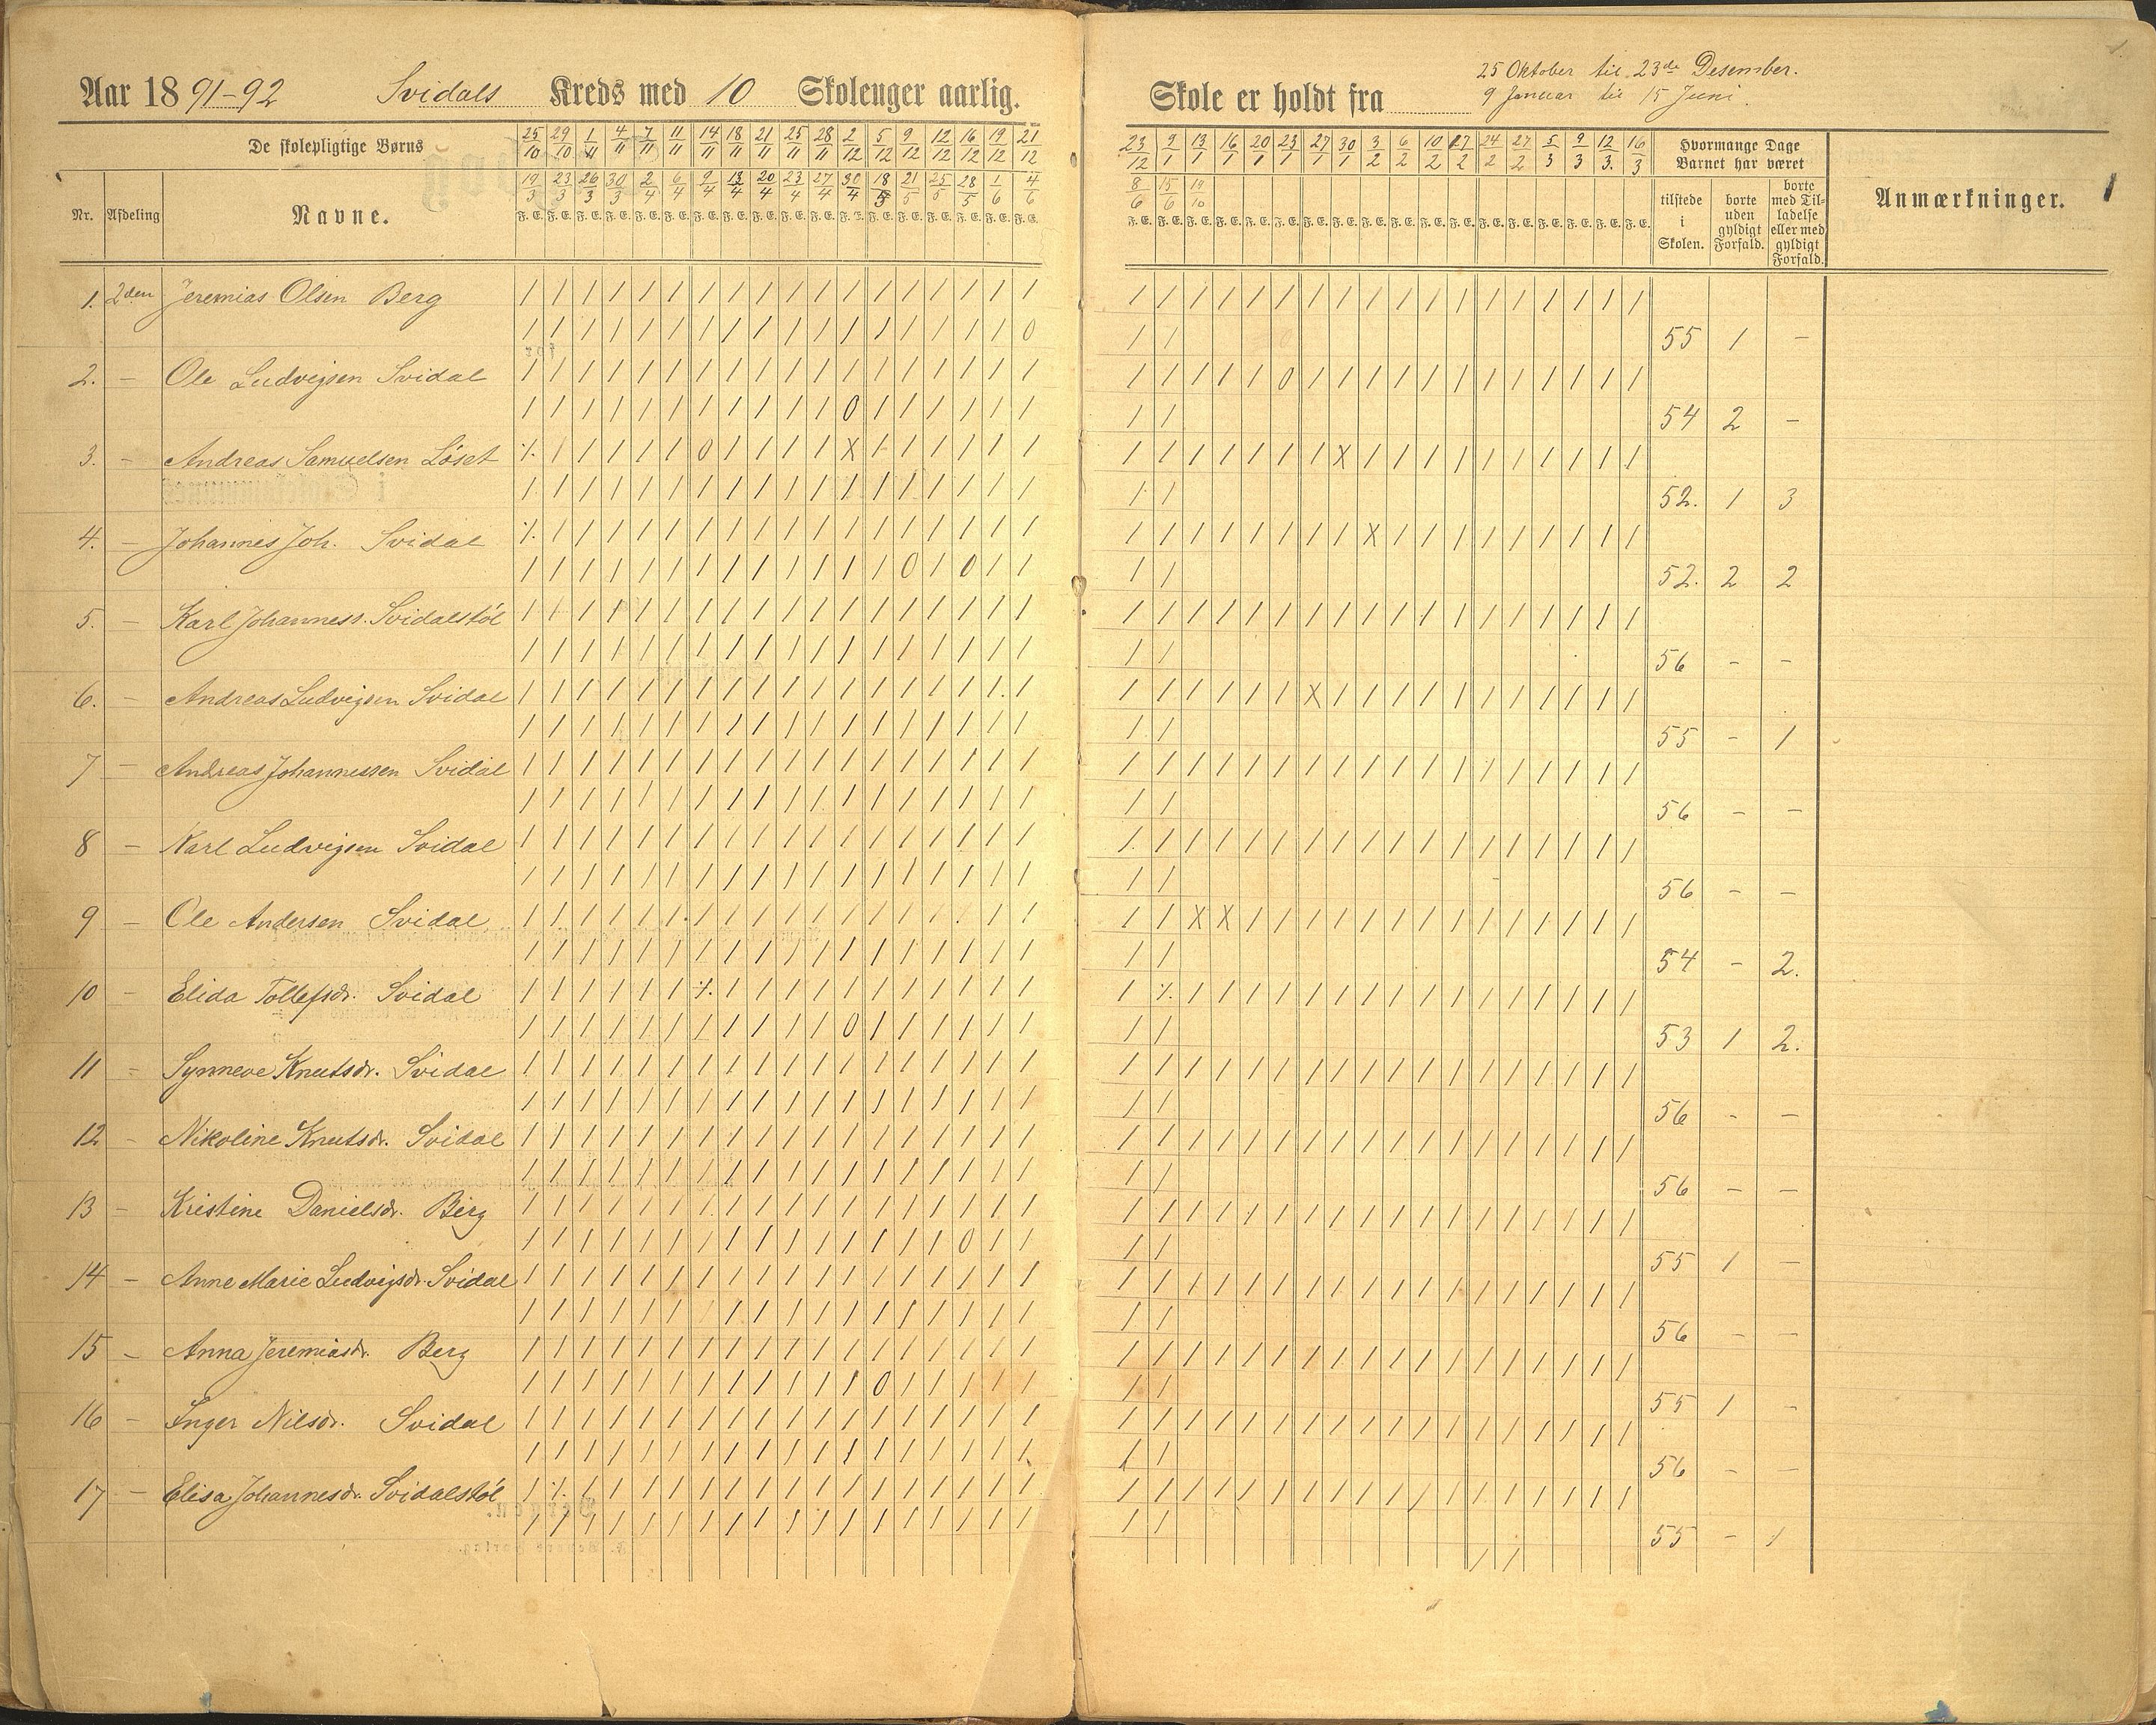 Aar 1891-92 Svidals Kreds med 10 Skoleuger aarlig.
De skolepligtige Børns
25/10 29/10 1/11 4/11 7/11 11/11 14/11 18/11 21/11 25/11 28/11 2/12 5/12 9/12 12/12 16/12 19/12 21/12
19/3 23/3 26/3 30/3 2/4 6/4 9/4 13/4 20/4 23/4 27/4 30/4 18/5 21/5 25/5 28/5 1/6 4/6
Nr. Afdeling Navne.
F. E. F. E. F. E. F. E. F. E. F. E. F. E. F. E. F. E. F. E. F. E. F. E. F. E. F. E. F. E. F. E. F. E. F. E.
1. 2den Jeremias Olsen Berg / / / / / / / / / / / / / / / / / /
/ / / / / / / / / / / / / / / / / 0
2. – Ole Ludvigsen Svidal / / / / / / / / / / / / / / / / / /
/ / / / / / / / / / / 0 / / / / / /
3. – Andreas Samuelsen Löset ⁒ / / / / / 0 / / / / X / / / / / /
/ / / / / / / / / / / / / / / / / /
4. – Johannes Joh. Svidal ⁒ / / / / / / / / / / / / / / / / /
/ / / / / / / / / / / / / 0 / 0 / /
5. – Karl Johanness. Svidalstöl / / / / / / / / / / / / / / / / / /
/ / / / / / / / / / / / / / / / / /
6. – Andreas Ludvigsen Svidal / / / / / / / / / / / / / / / / / /
/ / / / / / / / / / / / / / / / / /
7 – Andreas Johannessen Svidal / / / / / / / / / / / / / / / / / /
/ / / / / / / / / / / / / / / / / /
8 – Karl Ludvigsen Svidal / / / / / / / / / / / / / / / / / /
/ / / / / / / / / / / / / / / / / /
9 – Ole Andersen Svidal / / / / / / / / / / / / / / / / / /
/ / / / / / / / / / / / / / / / / /
10 – Elida Tollefsdr. Svidal / / / / / / ⁒ / / / / / / / / / / /
/ / / / / / / / / / / 0 / / / / / /
11 – Synneve Knutsdr. Svidal / / / / / / / / / / / / / / / / / /
/ / / / / / / / / / / / / / / / / /
12 – Nikoline Knutsdr. Svidal / / / / / / / / / / / / / / / / / /
/ / / / / / / / / / / / / / / / / /
13 – Kristine Danielsdr. Berg / / / / / / / / / / / / / / / / / /
/ / / / / / / / / / / / / / / 0 / /
14 – Anne Marie Ludvigsdr. Svidal / / / / / / / / / / / / / / / / / /
/ / / / / / / / / / / / / / / / / /
15 – Anna Jeremiasdr. Berg / / / / / / / / / / / / / / / / / /
/ / / / / / / / / / / / 0 / / / / /
16 – Inger Nilsdr. Svidal / / / / / / / / / / / / / / / / / /
/ / / / / / / / / / / / / / / / / /
17 – Elisa Johannesdr. Svidalstöl / ⁒ / / / / / / / / / / / / / / / /
/ / / / / / / / / / / / / / / / / /
1
25 Oktober til 23de Desember.
Skole er holdt fra 9 Januar til 15 Juni.
23/12 9/1 13/1 16/1 20/1 23/1 27/1 30/1 3/2 6/2 10/2 17/2 24/2 27/2 5/3 9/3 12/3. 16/3
8/6 15/6 19/10
F. E. F. E. F. E. F. E. F. E. F. E. F. E. F. E. F. E. F. E. F. E. F. E. F. E. F. E. F. E. F. E. F. E. F. E.
Hvormange Dage
Barnet har været
tilstede i Skolen.
borte uden gyldigt Forfald.
borte med Tilladelse eller med gyldigt Forfald.
Anmærkninger. 1
/ / / / / / / / / / / / / / / / / /
/ / 55 1 –
/ / / / / 0 / / / / / / / / / / / /
/ / 54 2 –
/ / / / / / / X / / / / / / / / / /
/ / 52. 1 3
/ / / / / / / / X / / / / / / / / /
/ / 52. 2 2
/ / / / / / / / / / / / / / / / / /
/ / 56 – –
/ / / / / / X / / / / / / / / / / /
/ / 55 – 1
/ / / / / / / / / / / / / / / / / /
/ / 56 – –
/ / / / / / / / / / / / / / / / / /
/ / 56 – –
/ / X X / / / / / / / / / / / / / /
/ / 54 – 2.
/ ⁒ / / / / / / / / / / / / / / / /
/ / 53 1 2.
/ / / / / / / / / / / / / / / / / /
/ / 56 – –
/ / / / / / / / / / / / / / / / / /
/ / 56 – –
/ / / / / / / / / / / / / / / / / /
/ / 55 1 –
/ / / / / / / / / / / / / / / / / /
/ / 56 – –
/ / / / / / / / / / / / / / / / / /
/ / 55 1 –
/ / / / / / / / / / / / / / / / / /
/ / 56 – –
/ / / / / / / / / / / / / / / / / /
/ / 55 – 1
/ /